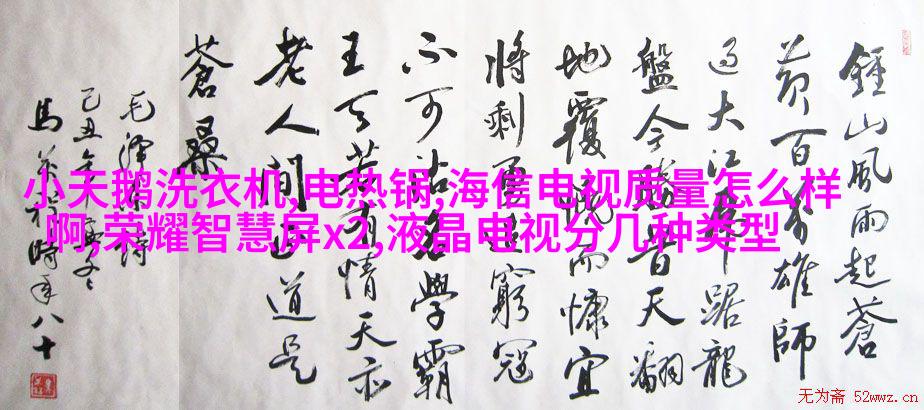 鍾山風雨起蒼
黄百万雄師
過大江虎踞龍
盤今勝昔天翻
地覆慨而慷宜
將剩勇追窮寇
不可沽名學霸
王天若有情天亦
老人間正道是
蒼桑
毛澤東詩
己丑年冬
馬時年八十
小天鹅洗衣机,电热锅,海信电视质量怎么样
啊,荣耀智慧屏x2,液晶电视分几种类型
无为斋 52wwz.cn